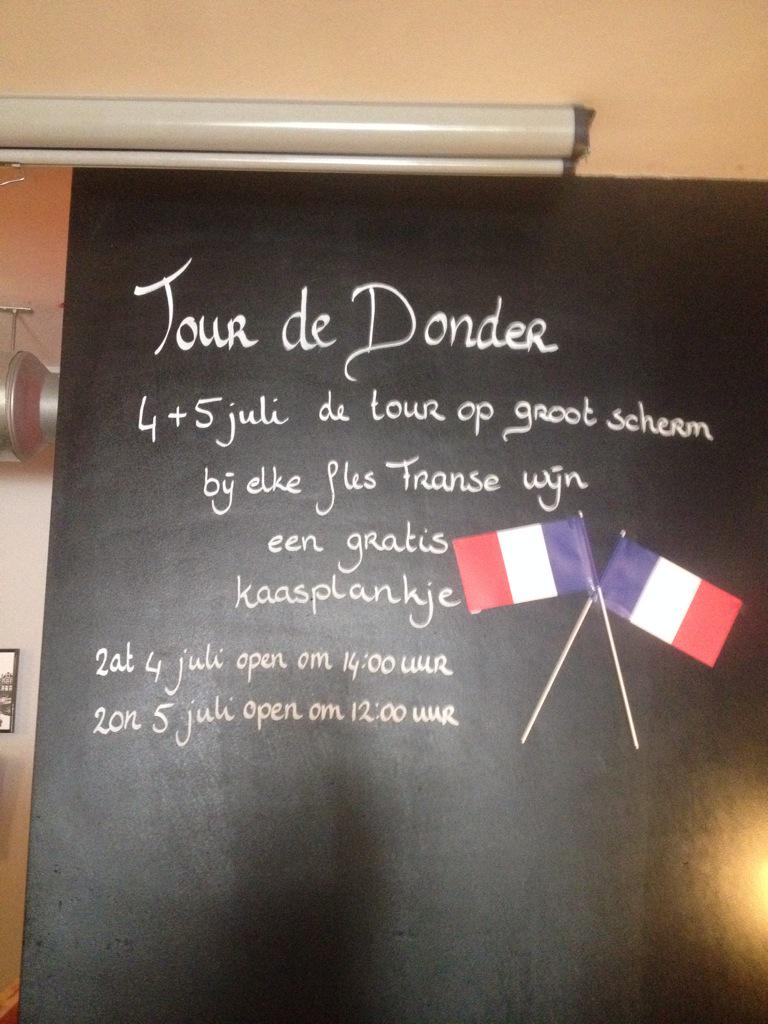 Tour de Donder
4 + 5 juli de tour op groot scherm
bij elke fles Franse wijn
een gratis
kaasplankje
zat 4 juli open om 14:00 uur
zon 5 juli open om 12:00 uur